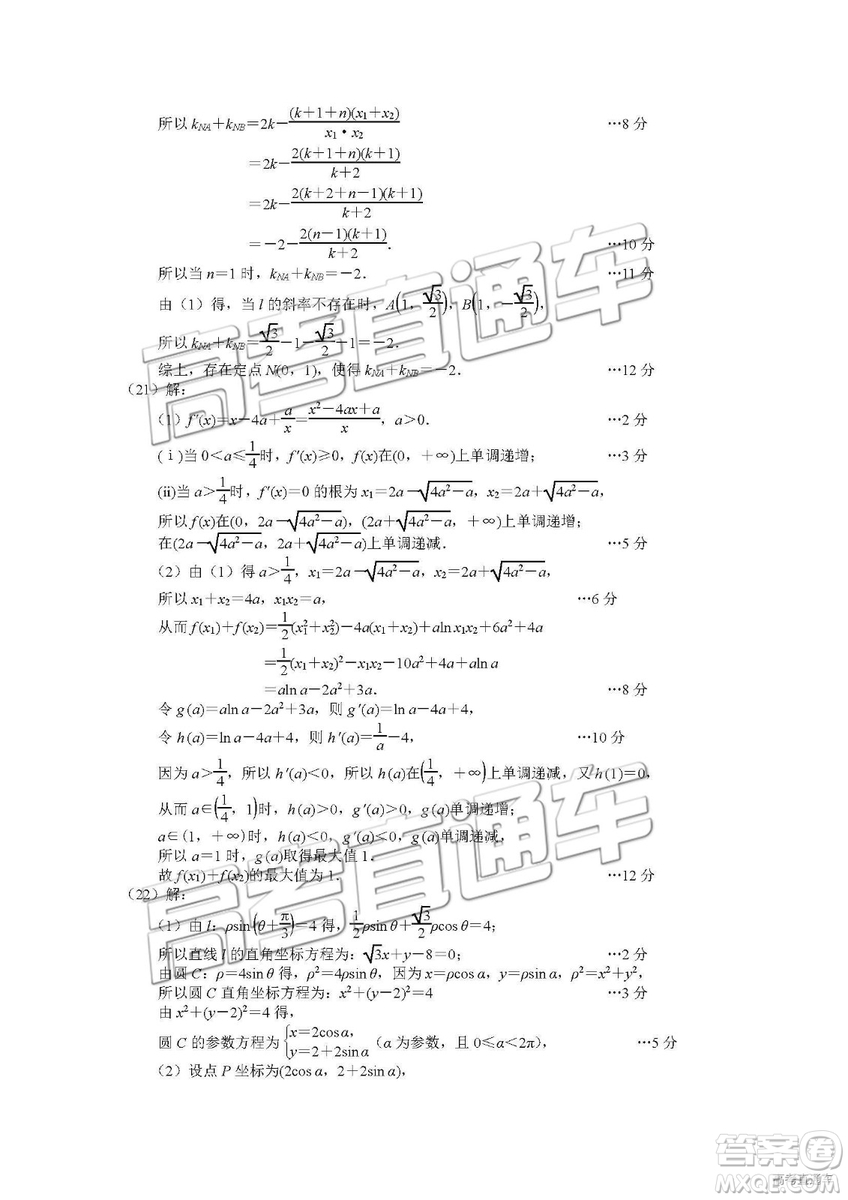 所以 kNA+kNB=2k-(k+1+n)(x₁+x₂)/(x₁·x₂) …8 分
=2k-2(k+1+n)(k+1)/(k+2)
=2k-2(k+2+n-1)(k+1)/(k+2)
=-2-2(n-1)(k+1)/(k+2). …10 分
所以当 n=1 时,kNA+kNB=-2. …11 分
由(1)得,当 l 的斜率不存在时,A(1,√3/2),B(1,-√3/2),
所以 kNA+kNB=√3/2-1-√3/2-1=-2.
综上,存在定点 N(0,1),使得 kNA+kNB=-2. …12 分
(21)解:
(1)f′(x)=x-4a+a/x=(x²-4ax+a)/x,a>0. …2 分
(ⅰ)当 0<a≤1/4时,f′(x)≥0,f(x)在(0,+∞)上单调递增; …3 分
(ⅱ)当 a>1/4时,f′(x)=0 的根为 x₁=2a-√(4a²-a),x₂=2a+√(4a²-a),
所以 f(x)在(0,2a-√(4a²-a)),(2a+√(4a²-a),+∞)上单调递增;
在(2a-√(4a²-a),2a+√(4a²-a))上单调递减. …5 分
(2)由(1)得 a>1/4,x₁=2a-√(4a²-a),x₂=2a+√(4a²-a),
所以 x₁+x₂=4a,x₁x₂=a, …6 分
从而 f(x₁)+f(x₂)=1/2(x₁²+x₂²)-4a(x₁+x₂)+aln x₁x₂+6a²+4a
=1/2(x₁+x₂)²-x₁x₂-10a²+4a+aln a
=aln a-2a²+3a. …8 分
令 g(a)=aln a-2a²+3a,则 g′(a)=ln a-4a+4,
令 h(a)=ln a-4a+4,则 h′(a)=1/a-4, …10 分
因为 a>1/4,所以 h′(a)<0,所以 h(a)在(1/4,+∞)上单调递减,又 h(1)=0,
从而 a∈(1/4,1)时,h(a)>0,g′(a)>0,g(a)单调递增;
a∈(1,+∞)时,h(a)<0,g′(a)<0,g(a)单调递减,
所以 a=1 时,g(a)取得最大值 1.
故 f(x₁)+f(x₂)的最大值为 1. …12 分
(22)解:
(1)由 l:ρsin(θ+π/3)=4 得,1/2ρsin θ+√3/2ρcos θ=4;
所以直线 l 的直角坐标方程为:√3x+y-8=0; …2 分
由圆 C:ρ=4sin θ 得,ρ²=4ρsin θ,因为 x=ρcos α,y=ρsin α,ρ²=x²+y²,
所以圆 C 直角坐标方程为:x²+(y-2)²=4 …3 分
由 x²+(y-2)²=4 得,
圆 C 的参数方程为{x=2cos α,y=2+2sin α(α 为参数,且 0≤α<2π), …5 分
(2)设点 P 坐标为(2cos α,2+2sin α),
高考直通车
高考直通车
高考直通车
答案圈
MXQE.COM